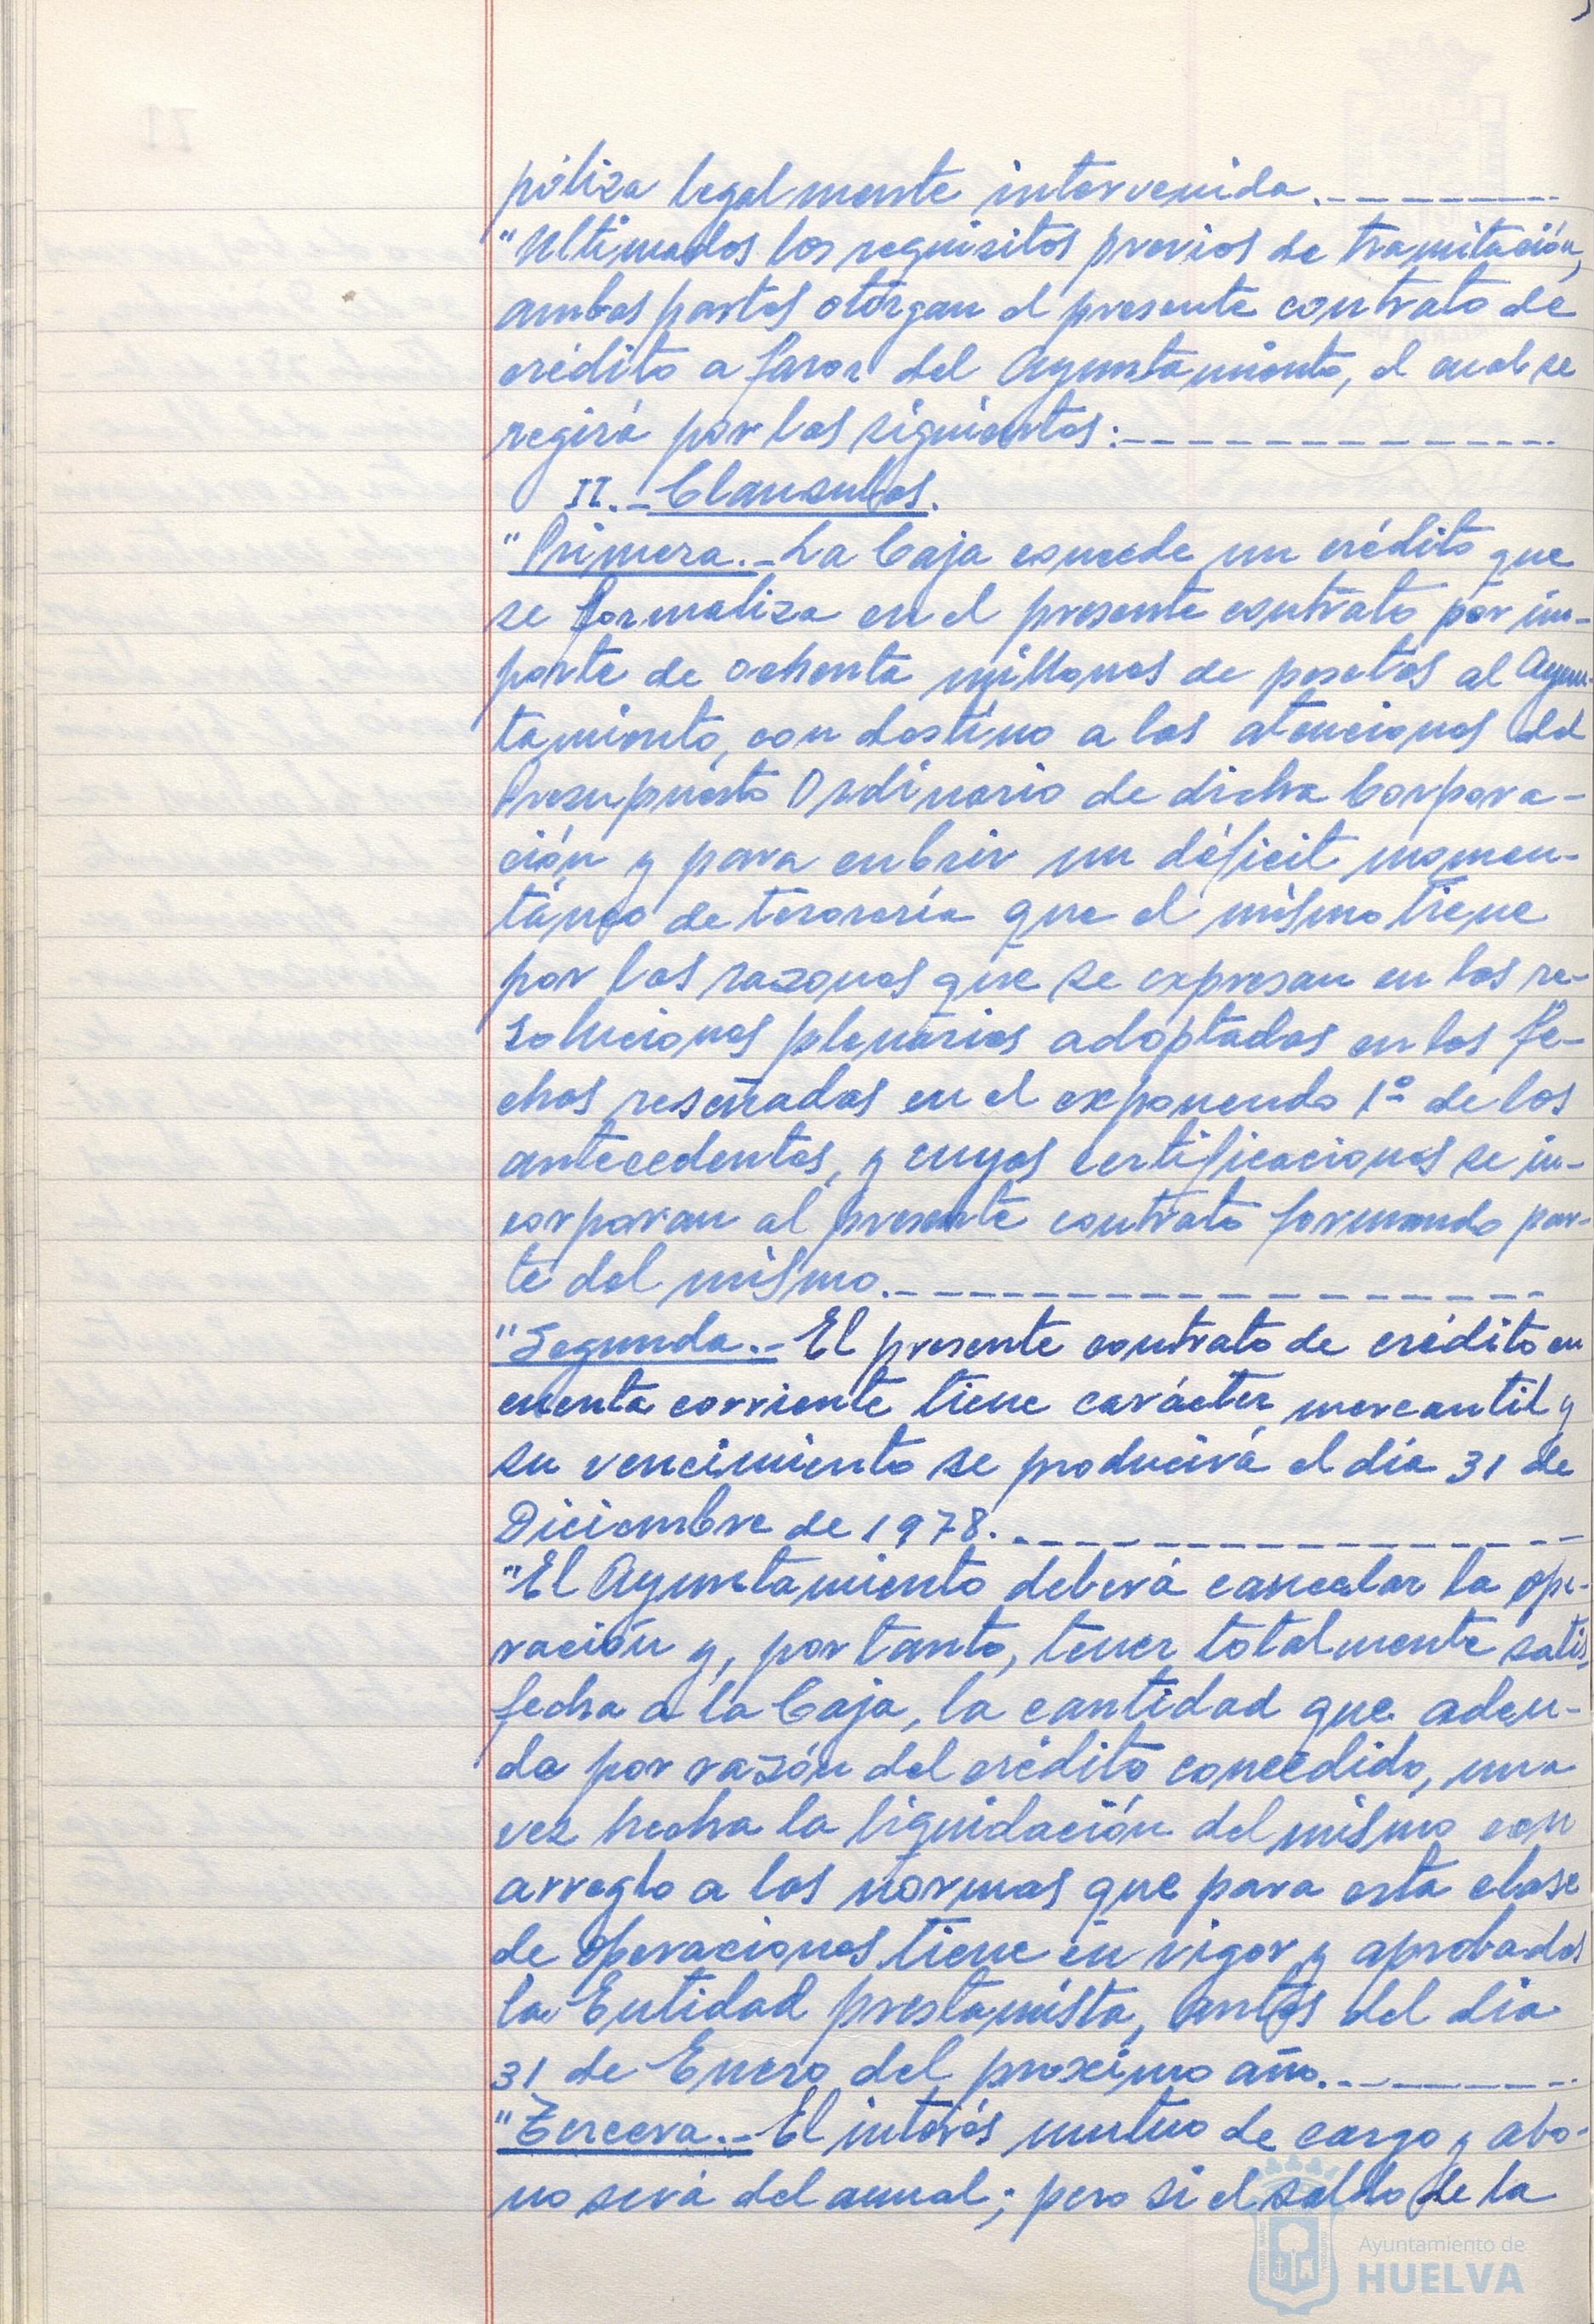 póliza legalmente intervenida.________
"Ultimados los requisitos previos de tramitación,
ambas partes otorgan el presente contrato de
crédito a favor del Ayuntamiento, el cual se
regirá por las siguientes:______________
II.- Clausulas.
"Primera.- La Caja concede un crédito que
se formaliza en el presente contrato por im-
porte de ochenta millones de pesetas al Ayun-
tamiento, con destino a las atenciones del
Presupuesto Ordinario de dicha Corpora-
ción y para cubrir un déficit momen-
táneo de tesorería que el mismo tiene
por las razones que se expresan en las re-
soluciones plenarias adoptadas en las fe-
chas reseñadas en el exponendo 1º de los
antecedentes, y cuyas certificaciones se in-
corporan al presente contrato formando par-
te del mismo.__________________
"Segunda.- El presente contrato de crédito en
cuenta corriente tiene carácter mercantil y
su vencimiento se producirá el día 31 de
Diciembre de 1978._______________
"El Ayuntamiento deberá cancelar la ope-
ración y, por tanto, tener totalmente satis-
fecha a la Caja, la cantidad que adeu-
da por razón del crédito concedido, una
vez hecha la liquidación del mismo con
arreglo a las normas que para esta clase
de operaciones tiene en vigor y aprobadas
la Entidad prestamista, antes del día
31 de Enero del proximo año.________
"Tercera.- El interés mutuo de cargo y abo-
no será del anual; pero si el saldo de la
Ayuntamiento de
HUELVA